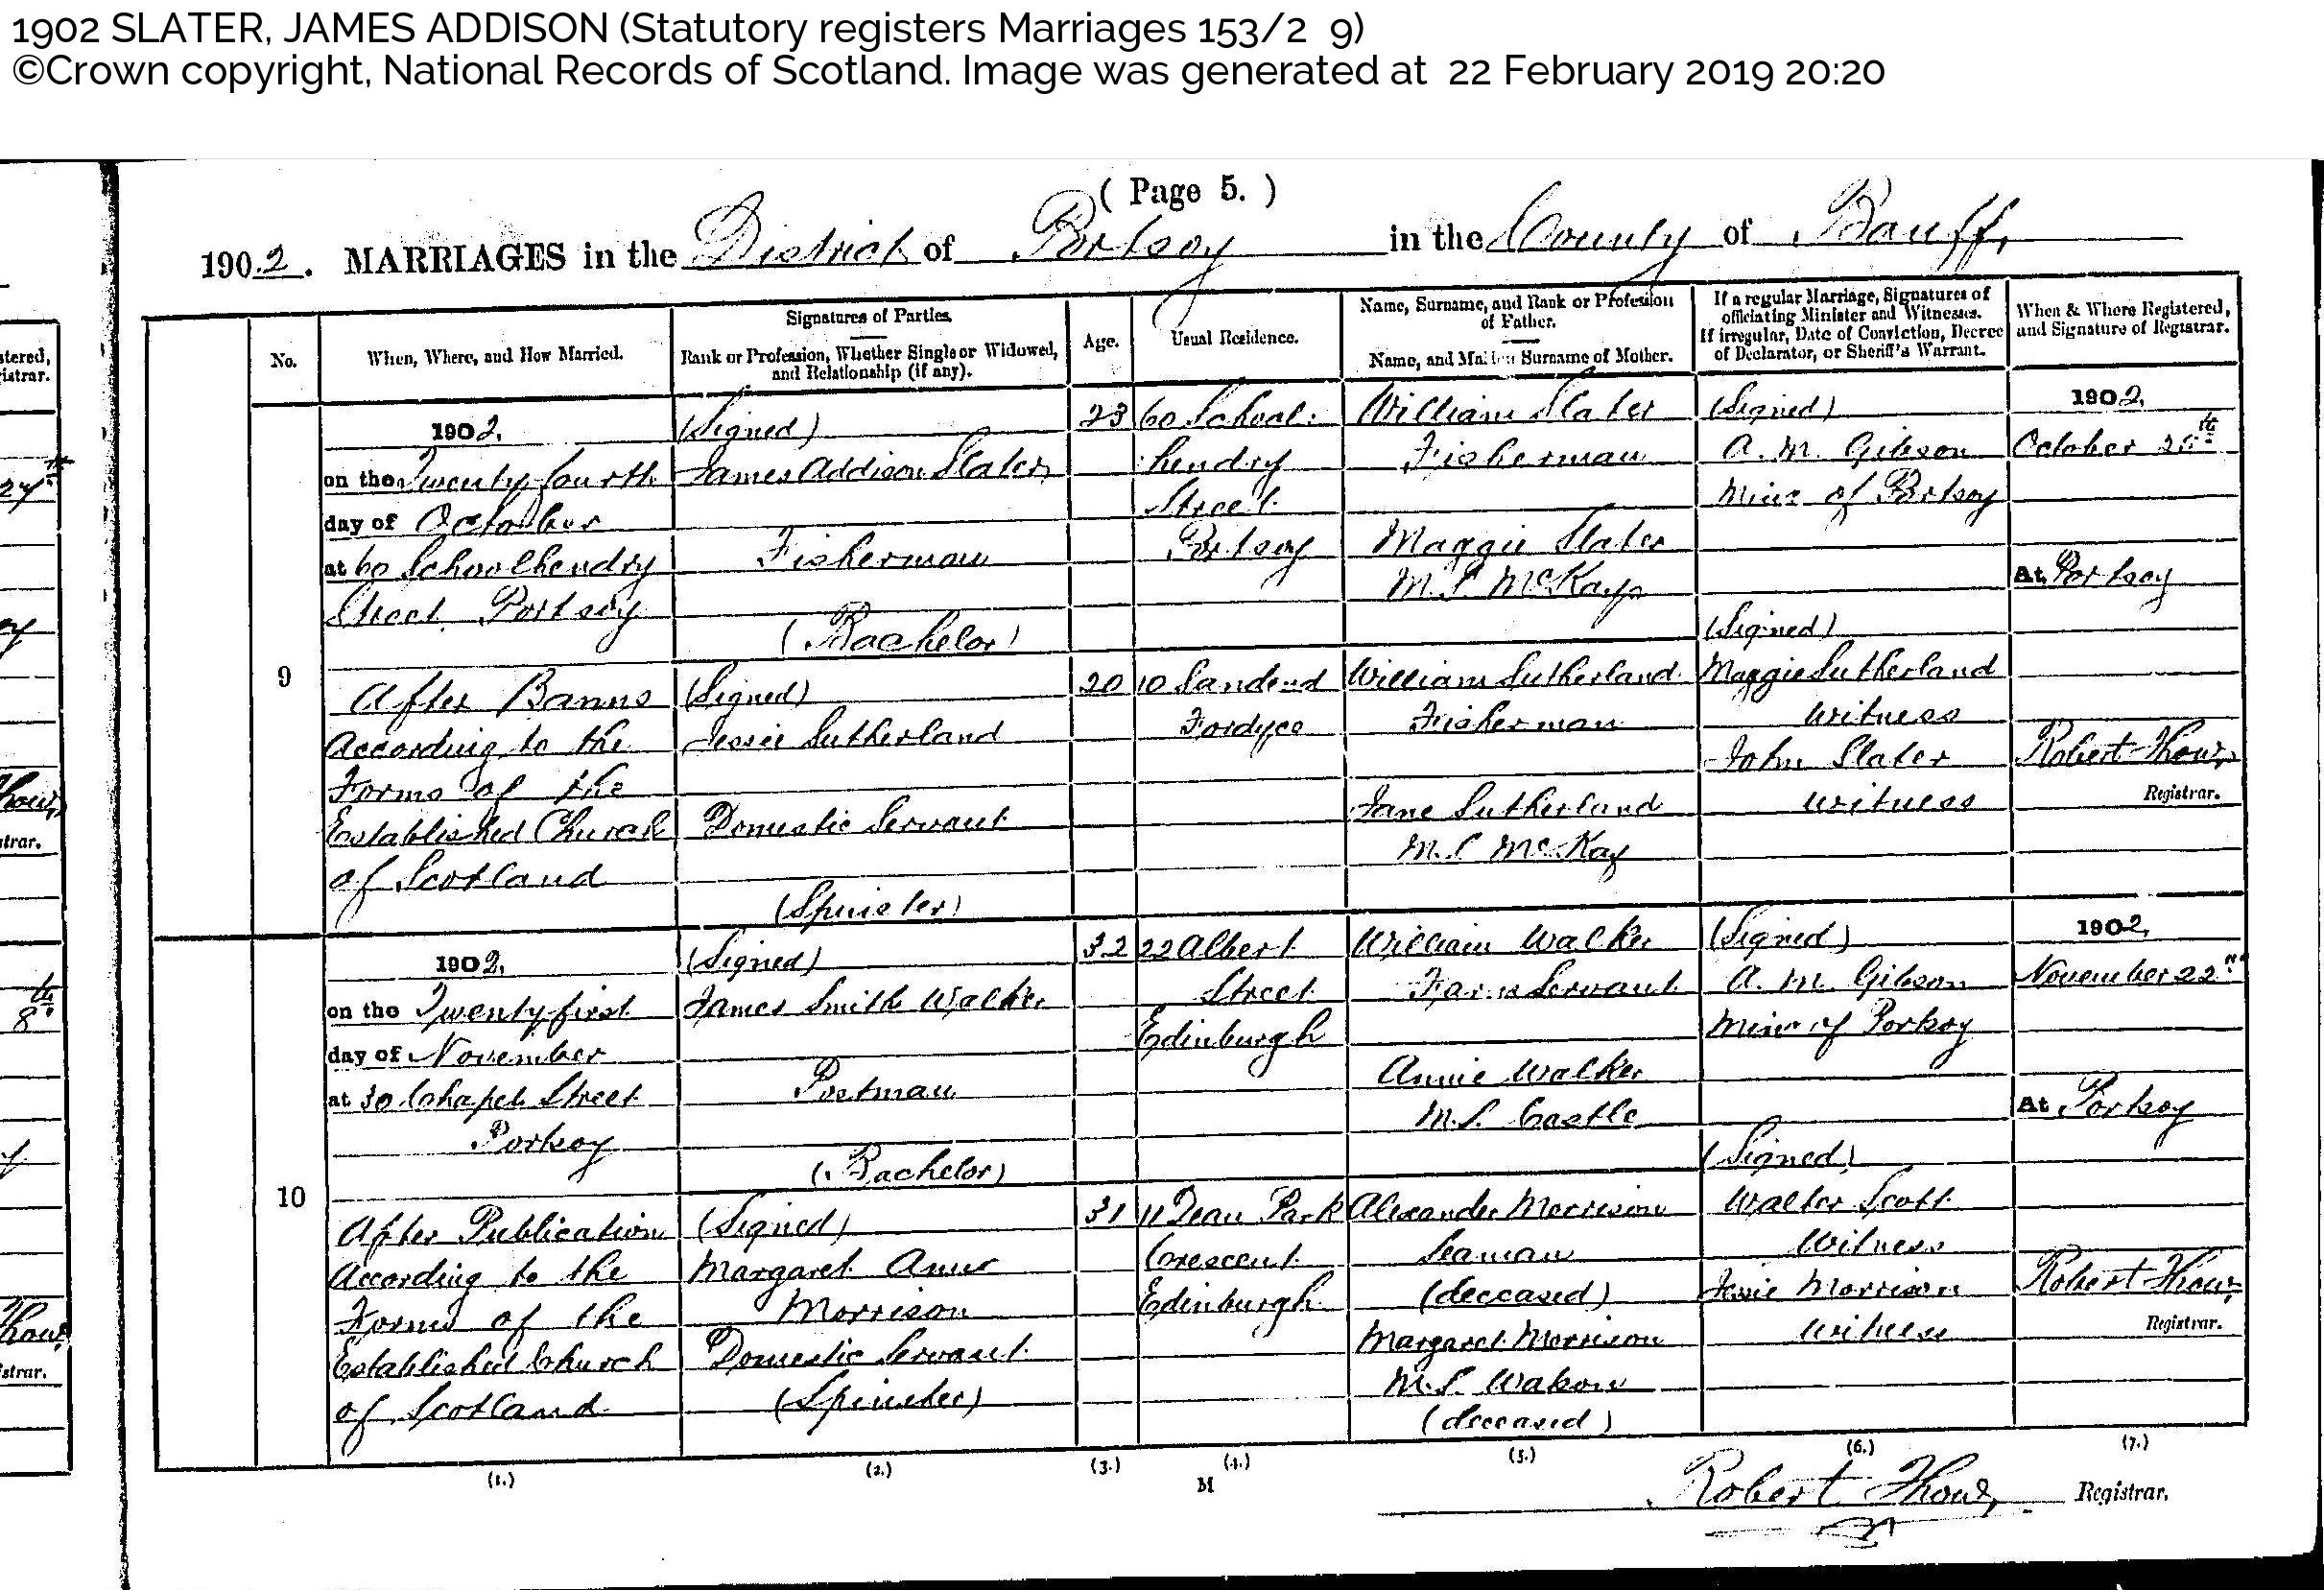 1902 SLATER, JAMES ADDISON (Statutory registers Marriages 153/2 9)
©Crown copyright, National Records of Scotland. Image was generated at 22 February 2019 20:20
( Page 5. )
1902. MARRIAGES in the District of Portsoy in the County of Banff,
No.
When, Where, and How Married.
Signatures of Parties.
Rank or Profession, Whether Single or Widowed,
and Relationship (if any).
Age.
Usual Residence.
Name, Surname, and Rank or Profession
of Father.
Name, and Maiden Surname of Mother.
If a regular Marriage, Signatures of
officiating Minister and Witnesses.
If irregular, Date of Conviction, Decree
of Declarator, or Sheriff's Warrant.
When & Where Registered,
and Signature of Registrar.
9
1902.
on the Twenty fourth
day of October
at 60 Schoolhendry
Street Portsoy
After Banns
According to the
Forms of the
Established Church
of Scotland
(Signed)
James Addison Slater
Fisherman
(Bachelor)
(Signed)
Jessie Sutherland
Domestic Servant
(Spinster)
23
20
60 School:
:hendry
Street
Portsoy
10 Sandend
Fordyce
William Slater
Fisherman
Maggie Slater
M.S McKay
William Sutherland
Fisherman
Jane Sutherland
M.S McKay
(Signed)
A. M. Gibson
Minr of Portsoy
(Signed)
Maggie Sutherland
Witness
John Slater
Witness
1902.
October 25th
At Portsoy
Robert Thow,
Registrar.
10
1902.
on the Twenty first
day of November
at 30 Chapel Street
Portsoy
After Publication
According to the
Forms of the
Established Church
of Scotland
(Signed)
James Smith Walker
Postman
(Bachelor)
(Signed)
Margaret Anne
Morrison
Domestic Servant
(Spinster)
32
31
22 Albert
Street
Edinburgh
11 Dean Park
Crescent
Edinburgh
William Walker
Farm Servant
Annie Walker
M.S. Castle
Alexander Morrison
Seaman
(deceased)
Margaret Morrison
M.S.
(deceased)
(Signed)
A. M. Gibson
Minr of Portsoy
(Signed)
Walter Scott
Witness
Jessie Morrison
Witness
1902.
November 22nd
At Portsoy
Robert Thow,
Registrar.
(1.) (2.) (3.) (4.) (5.) (6.) (7.)
M
Robert Thow, Registrar.